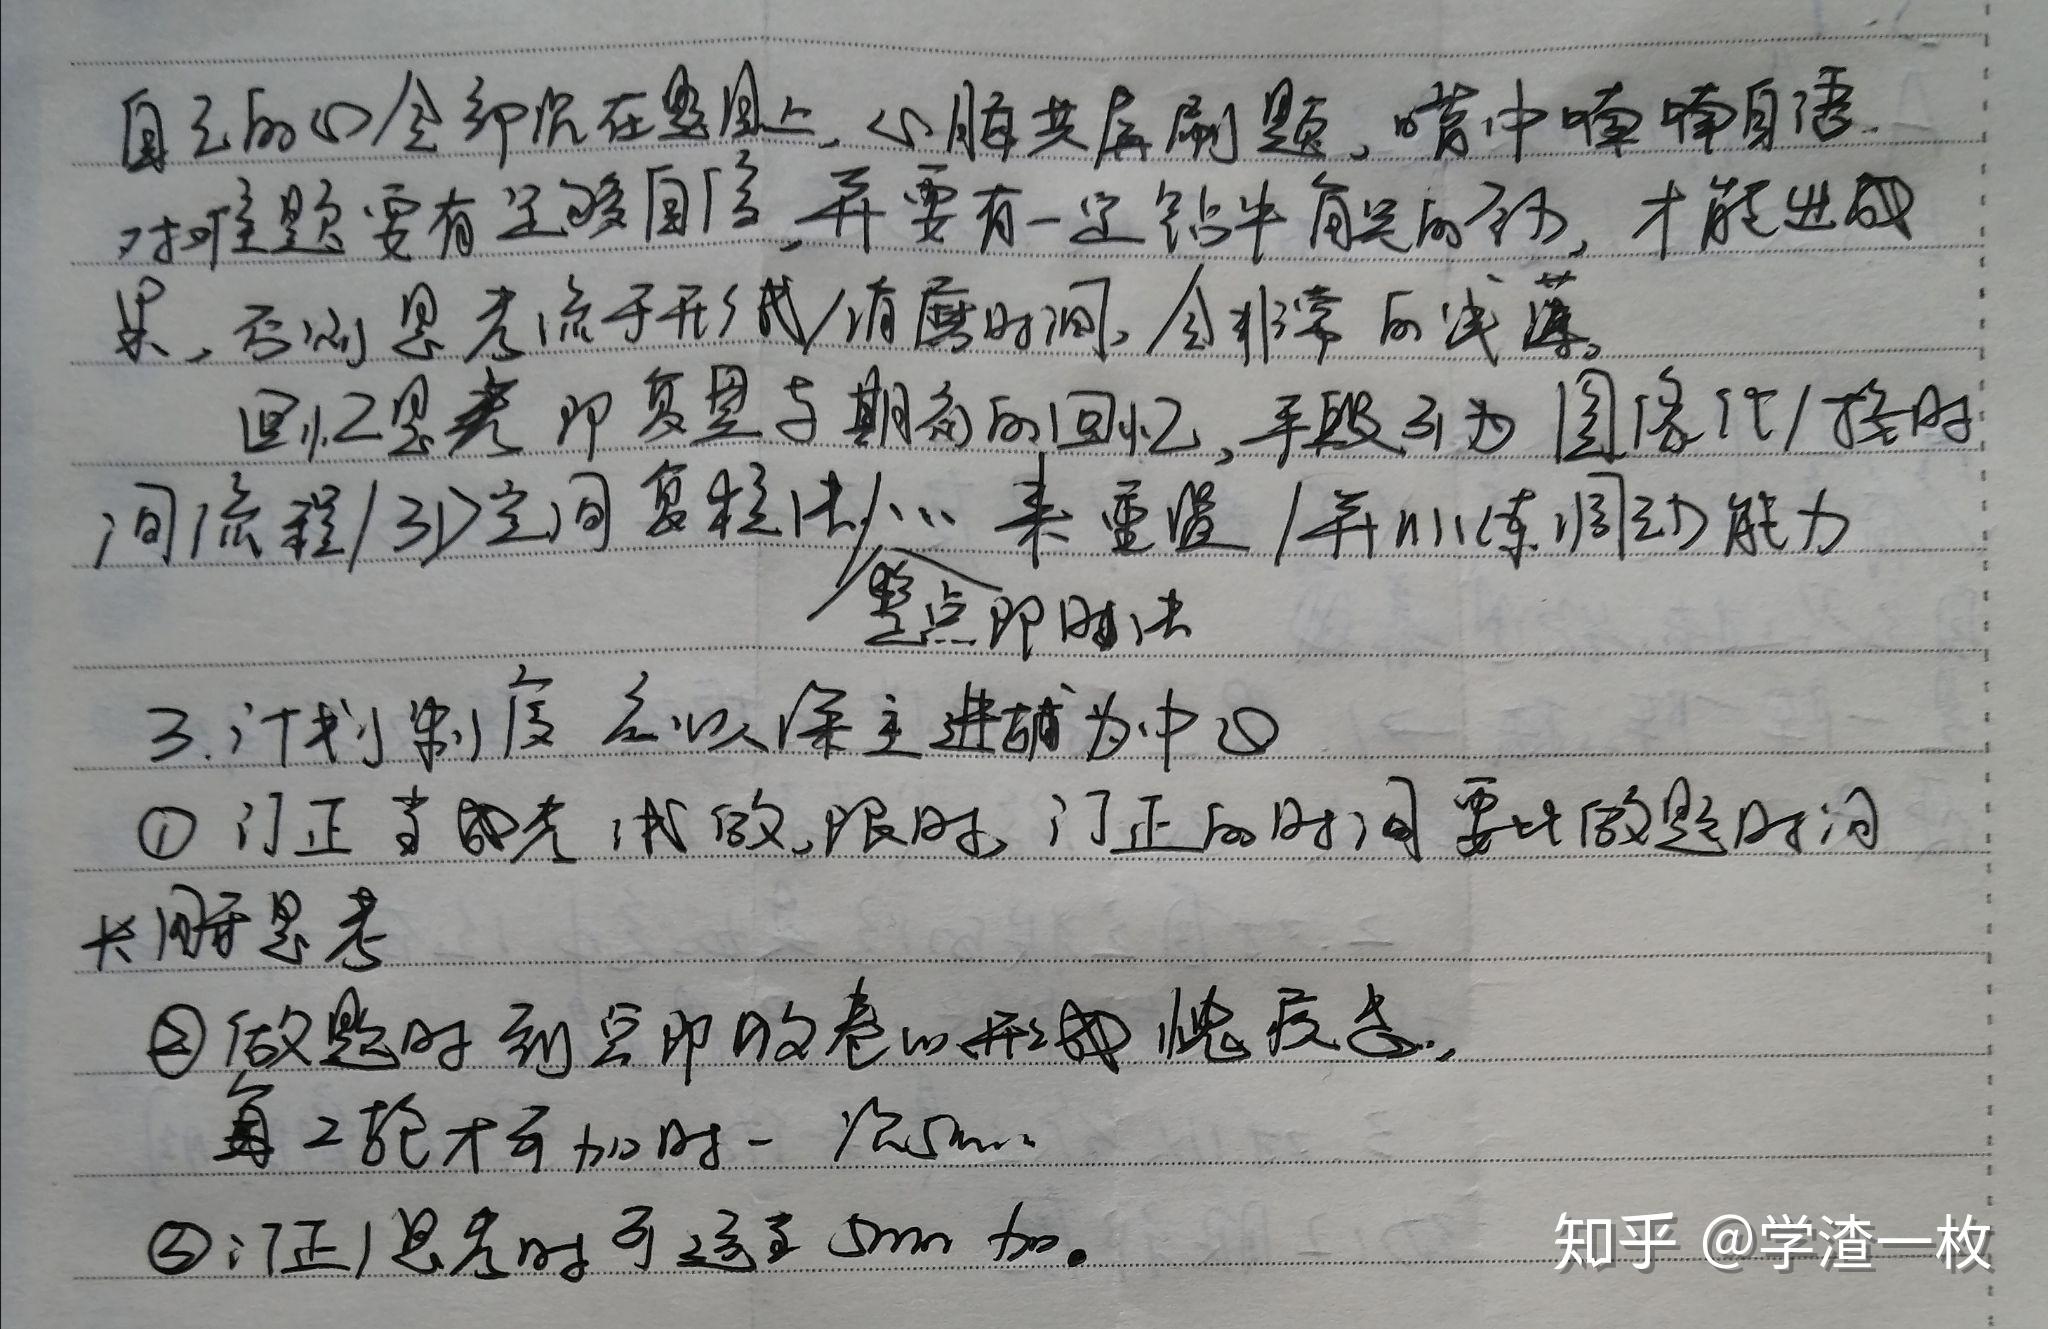 自己的心全部沉在题目上,心脑共屏刷题,嘴中喃喃自语.
对难题要有足够自信,并要有一定钻牛角尖的 ,才能出成
果,否则思考流于形式/消磨时间,会非常的浅薄。
回忆思考即复盘与期初的回忆,手段引为图像化/按时
间流程/3D空间复程法/… 来重置/并训练调动能力
整点即时法
3.计划制度 以深主进辅为中心
① 订正当成先试做,限时,订正的时间要比做题时间
长 思考
②做题时到立即收卷以形成 .
每2轮才可加时一次5min
③订正/思考时可适至5min加。
知乎 @学渣一枚